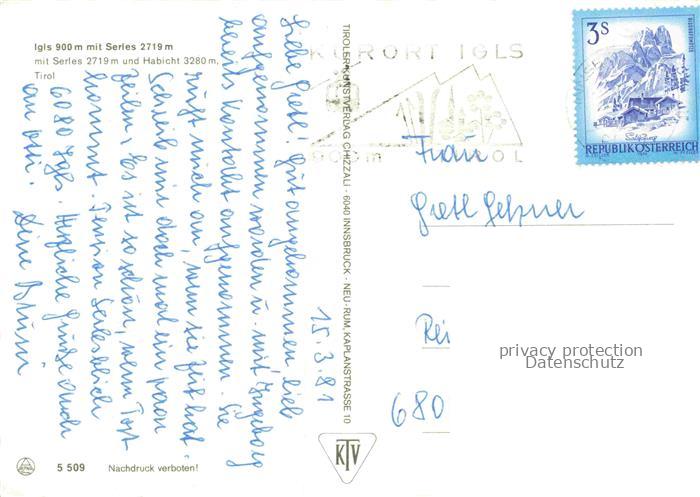 Igls 900 m mit Serles 2719 m
mit Serles 2719 m und Habicht 3280 m,
Tirol
15.3.81
Liebe Gretl! Gut angekommen lieb
aufgenommen worden u. mit Ingeborg
bereits Kontakt aufgenommen. Sie
ruft mich an, wenn sie Zeit hat.
Schreib mir doch mal ein paar
Zeilen, es ist so schön, wenn Post
kommt. Pension Serlesblick
6080 Igls. Herzliche Grüße auch
an
Deine
TIROLER KUNSTVERLAG CHIZZALI - 6040 INNSBRUCK - NEU-RUM, KAPLANSTRASSE 10
KTV
5 509 Nachdruck verboten!
KURORT IGLS
900m TIROL
3 S
REPUBLIK ÖSTERREICH
Frau
Gretl
Rei
680
privacy protection
Datenschutz